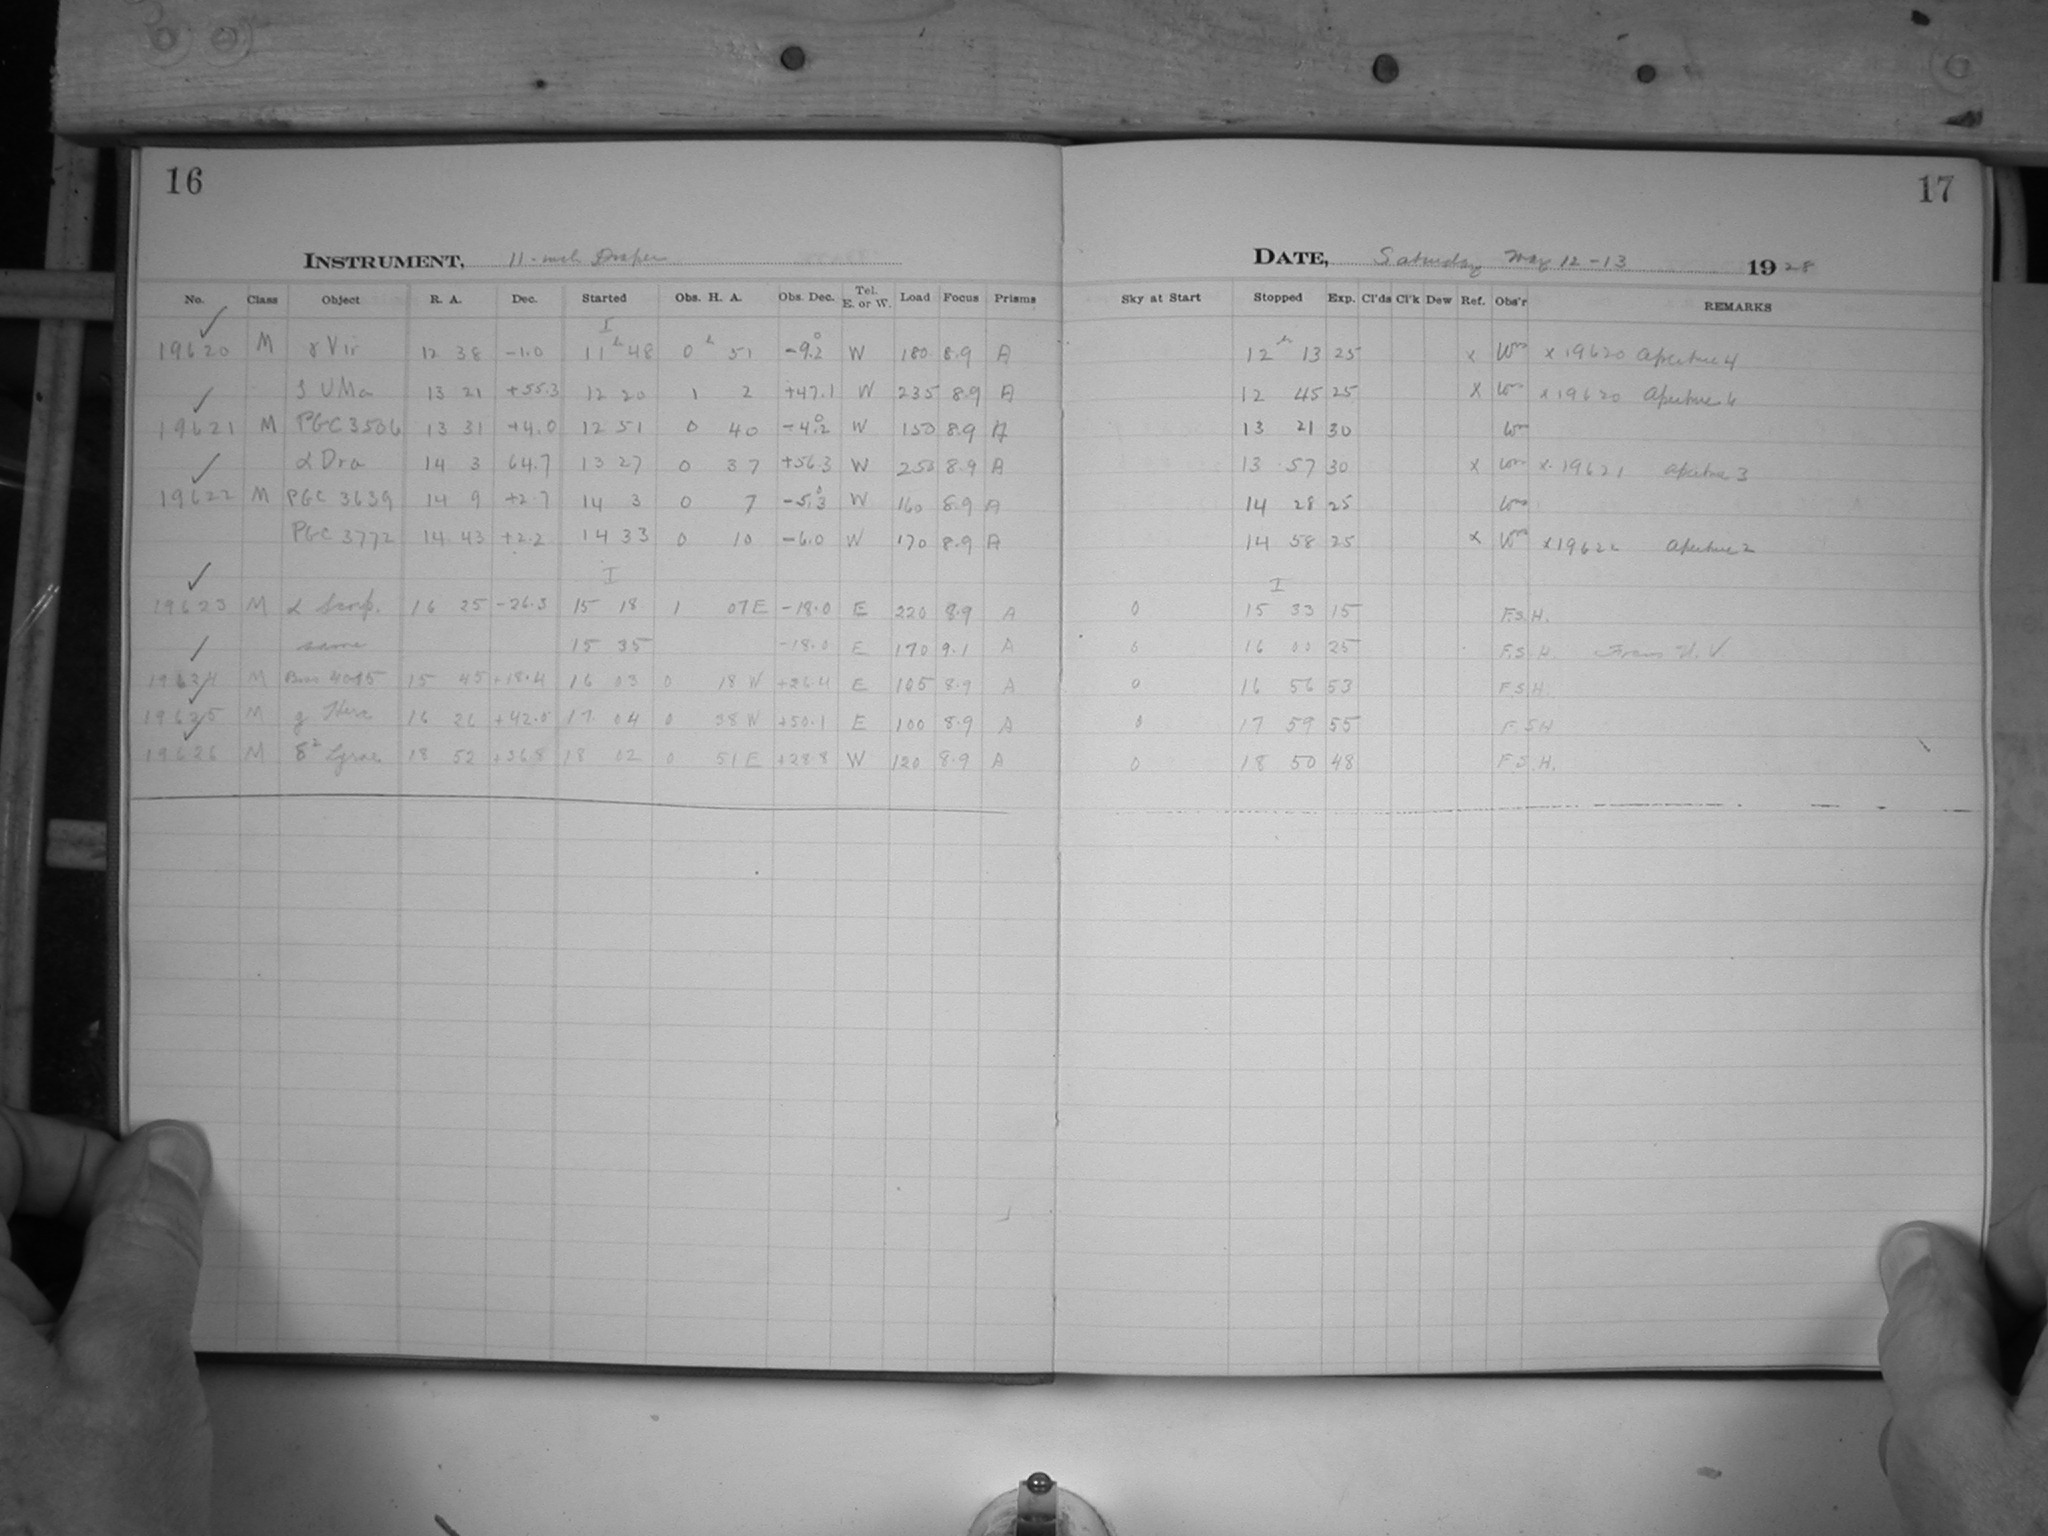 16
17
INSTRUMENT, 11-inch Draper
DATE, Saturday May 12-13 1928
No. Class Object R. A. Dec. Started Obs. H. A. Obs. Dec. Tel. E. or W. Load Focus Prisms Sky at Start Stopped Exp. Cl'ds Cl'k Dew Ref. Obs'r REMARKS
19620 M γ Vir 12 38 -1.0 11h 48 0h 51 -9.2 W 180 8.9 A 12h 13 25 x x 19620 Aperture 4
UMa 13 21 +55.3 12 20 1 2 +47.1 W 235 8.9 A 12 45 25 x x 19620 Aperture
19621 M PGC 3506 13 31 +4.0 12 51 0 40 -4.2 W 150 8.9 A 13 21 30
α Dra 14 3 64.7 13 27 0 37 +56.3 W 250 8.9 A 13 57 30 x x 19621 aperture 3
19622 M PGC 3639 14 9 +2.7 14 3 0 7 -5.3 W 160 8.9 A 14 28 25
PGC 3772 14 43 +2.2 14 33 0 10 -6.0 W 170 8.9 A 14 58 25 x x 19622 aperture 2
I I
19623 M α Scorp. 16 25 -26.3 15 18 1 07 E -18.0 E 220 8.9 A 0 15 33 15 F.S.H.
same 15 35 -18.0 E 170 9.1 A 0 16 00 25 F.S.H.
19624 M 15 45 +18.4 16 03 0 18 W +26.4 E 105 8.9 A 0 16 56 53 F.S.H.
19625 M g Herc 16 26 +42.0 17 04 0 38 W +50.1 E 100 8.9 A 0 17 59 55 F.S.H
19626 M δ² Lyrae 18 52 +36.8 18 02 0 51 E +28.8 W 120 8.9 A 0 18 50 48 F.S.H.